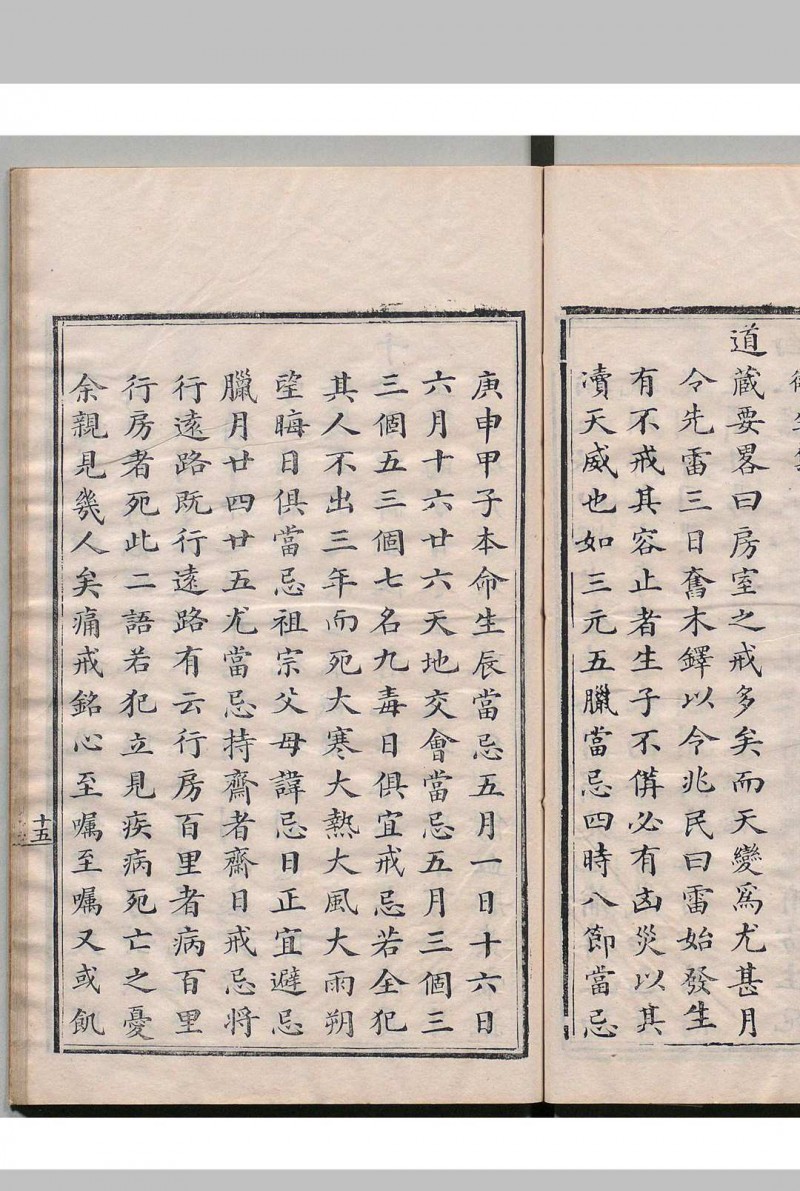 道藏要畧曰房室之戒多矣而天變爲尤甚月
令先雷三日奮木鐸以令兆民曰雷始發生
有不戒其容止者生子不備必有凶災以其
瀆天威也如三元五臘當忌四時八節當忌
庚申甲子本命生辰當忌五月一日十六日
六月十六廿六天地交會當忌五月三個三
三個五三個七名九毒日俱宜戒忌若全犯
其人不出三年而死大寒大熱大風大雨朔
望晦日俱當忌祖宗父母諱忌日正宜避忌
臘月廿四廿五尤當忌持齋者齋日戒忌將
行遠路既行遠路有云行房百里者病百里
行房者死此二語若犯立見疾病死亡之憂
余親見幾人矣痛戒銘心至囑至囑又或飢
十五